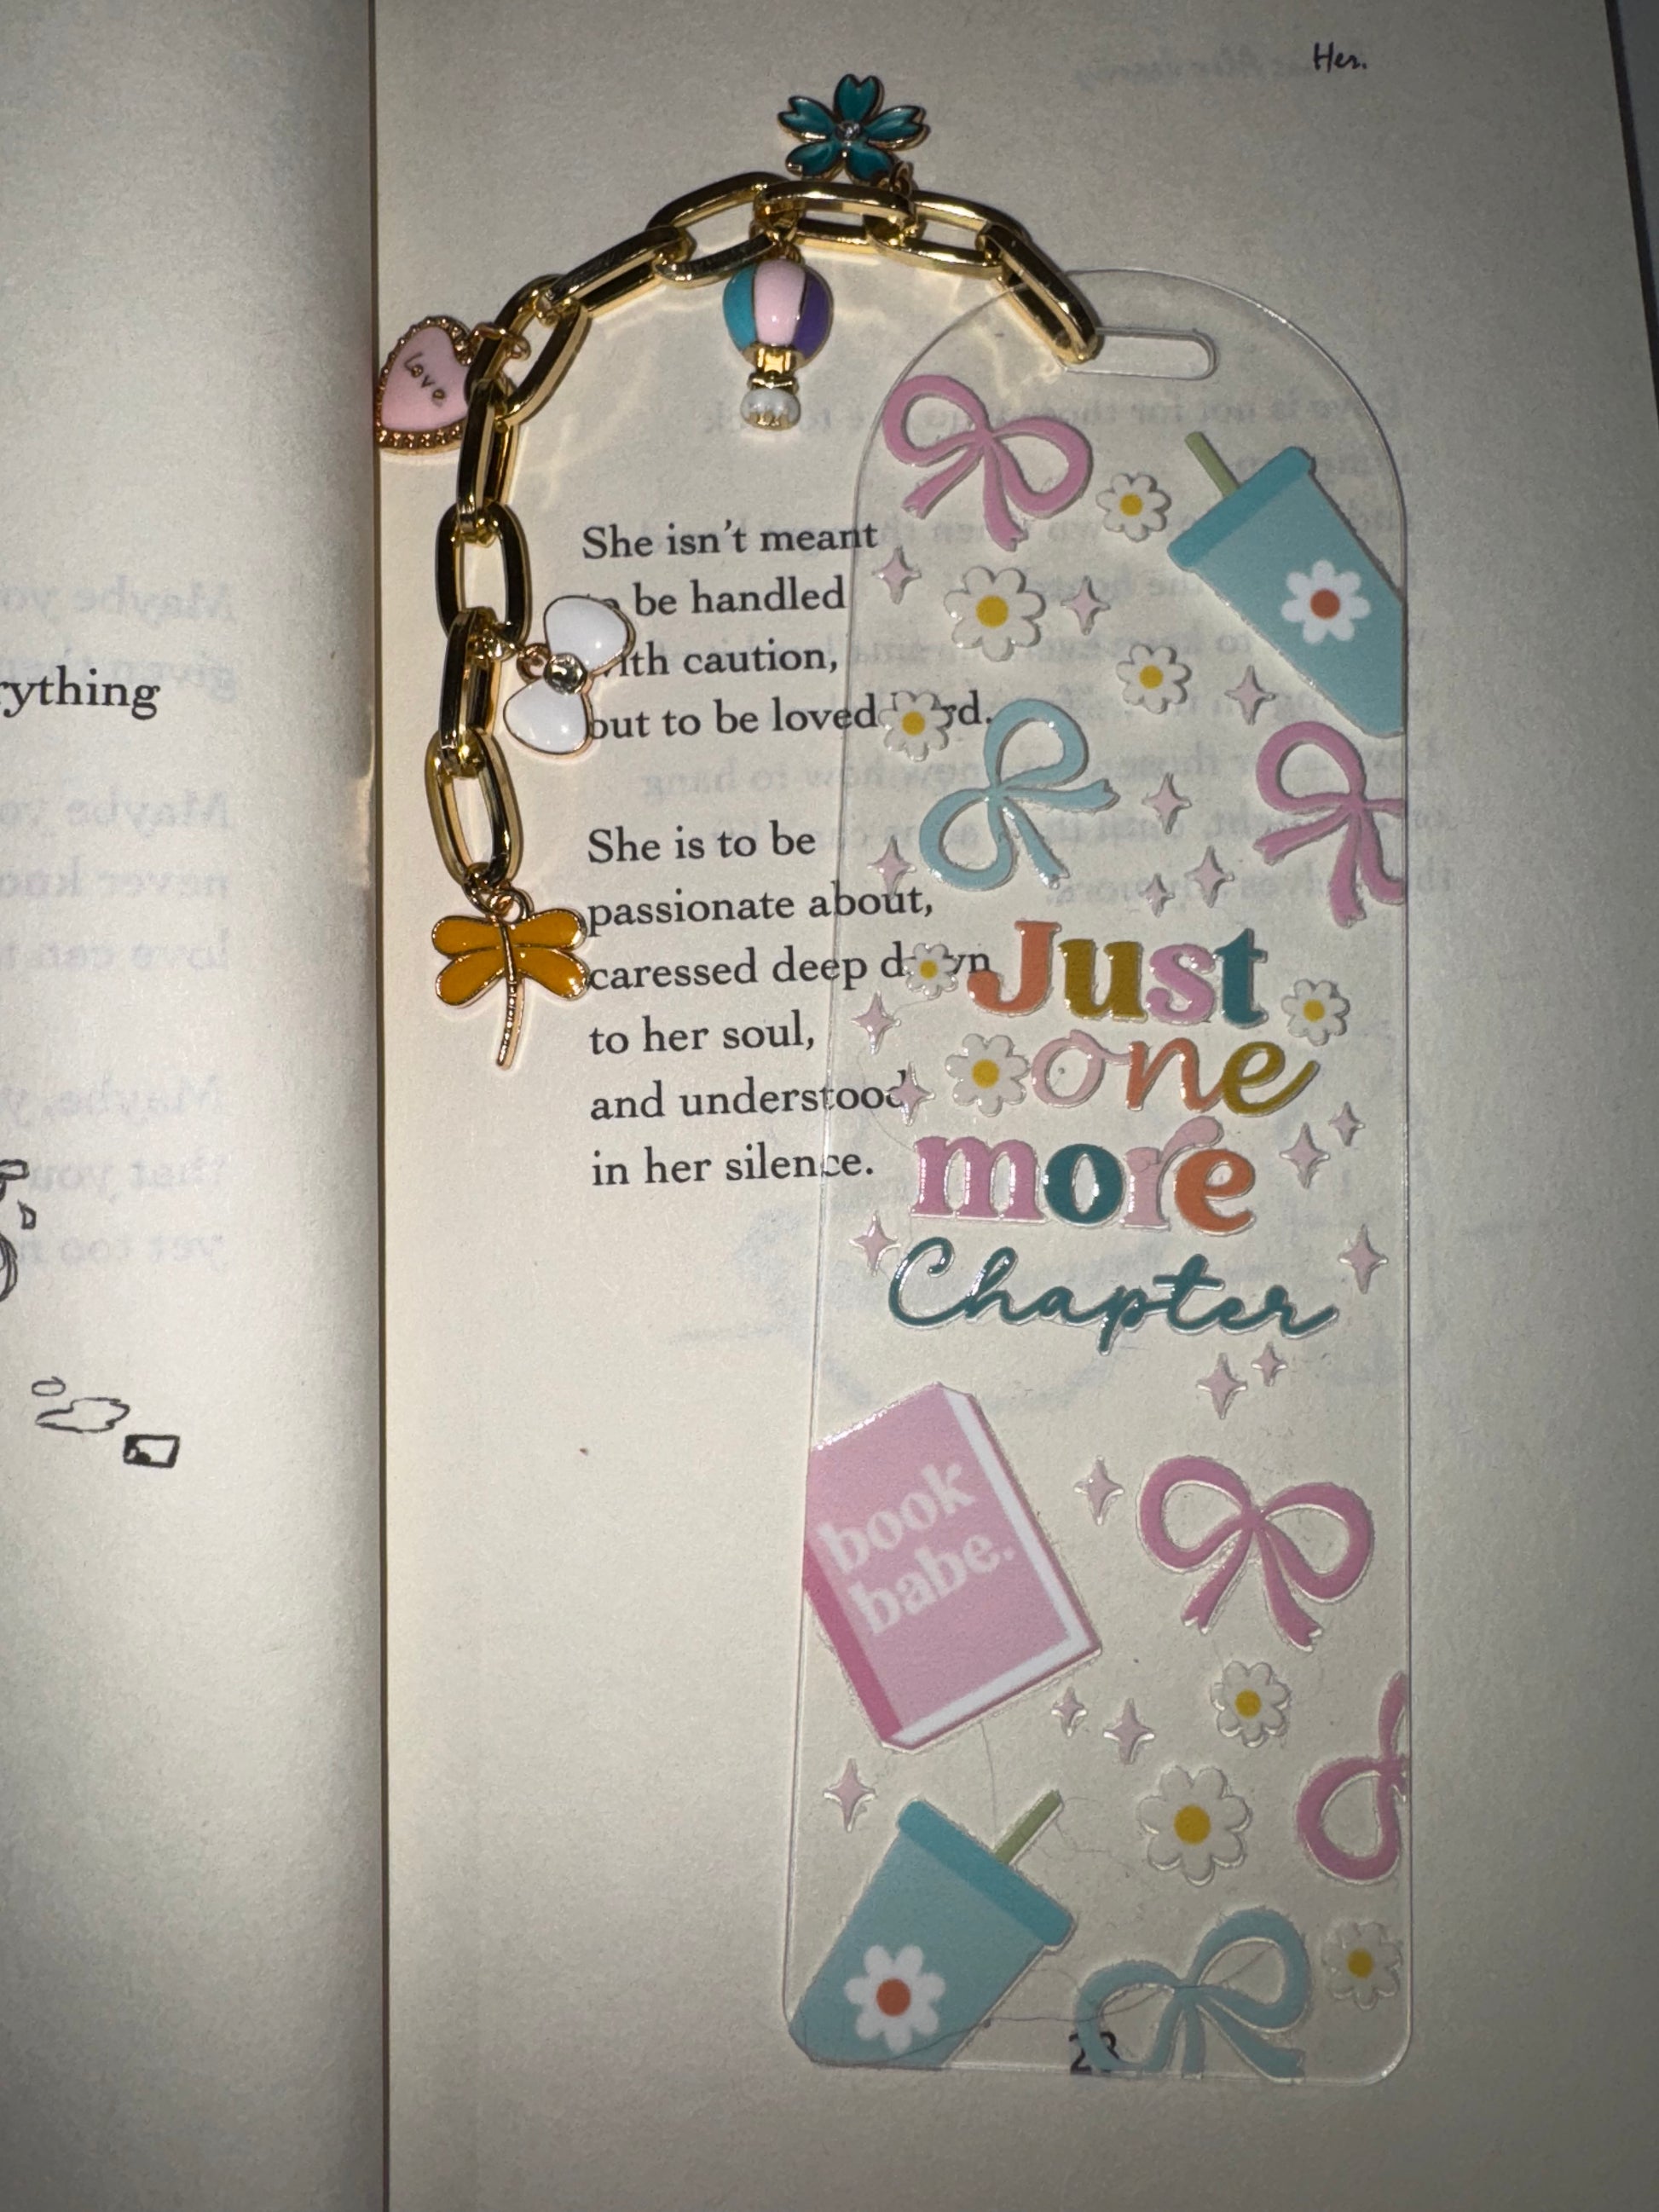 Her.
Love
She isn't meant
be handled
caution,
but to be loved
She is to be
passionate about,
caressed deep
to her soul,
and understood
in her silence.
ything
Just
one
more
Chapter
book
babe.